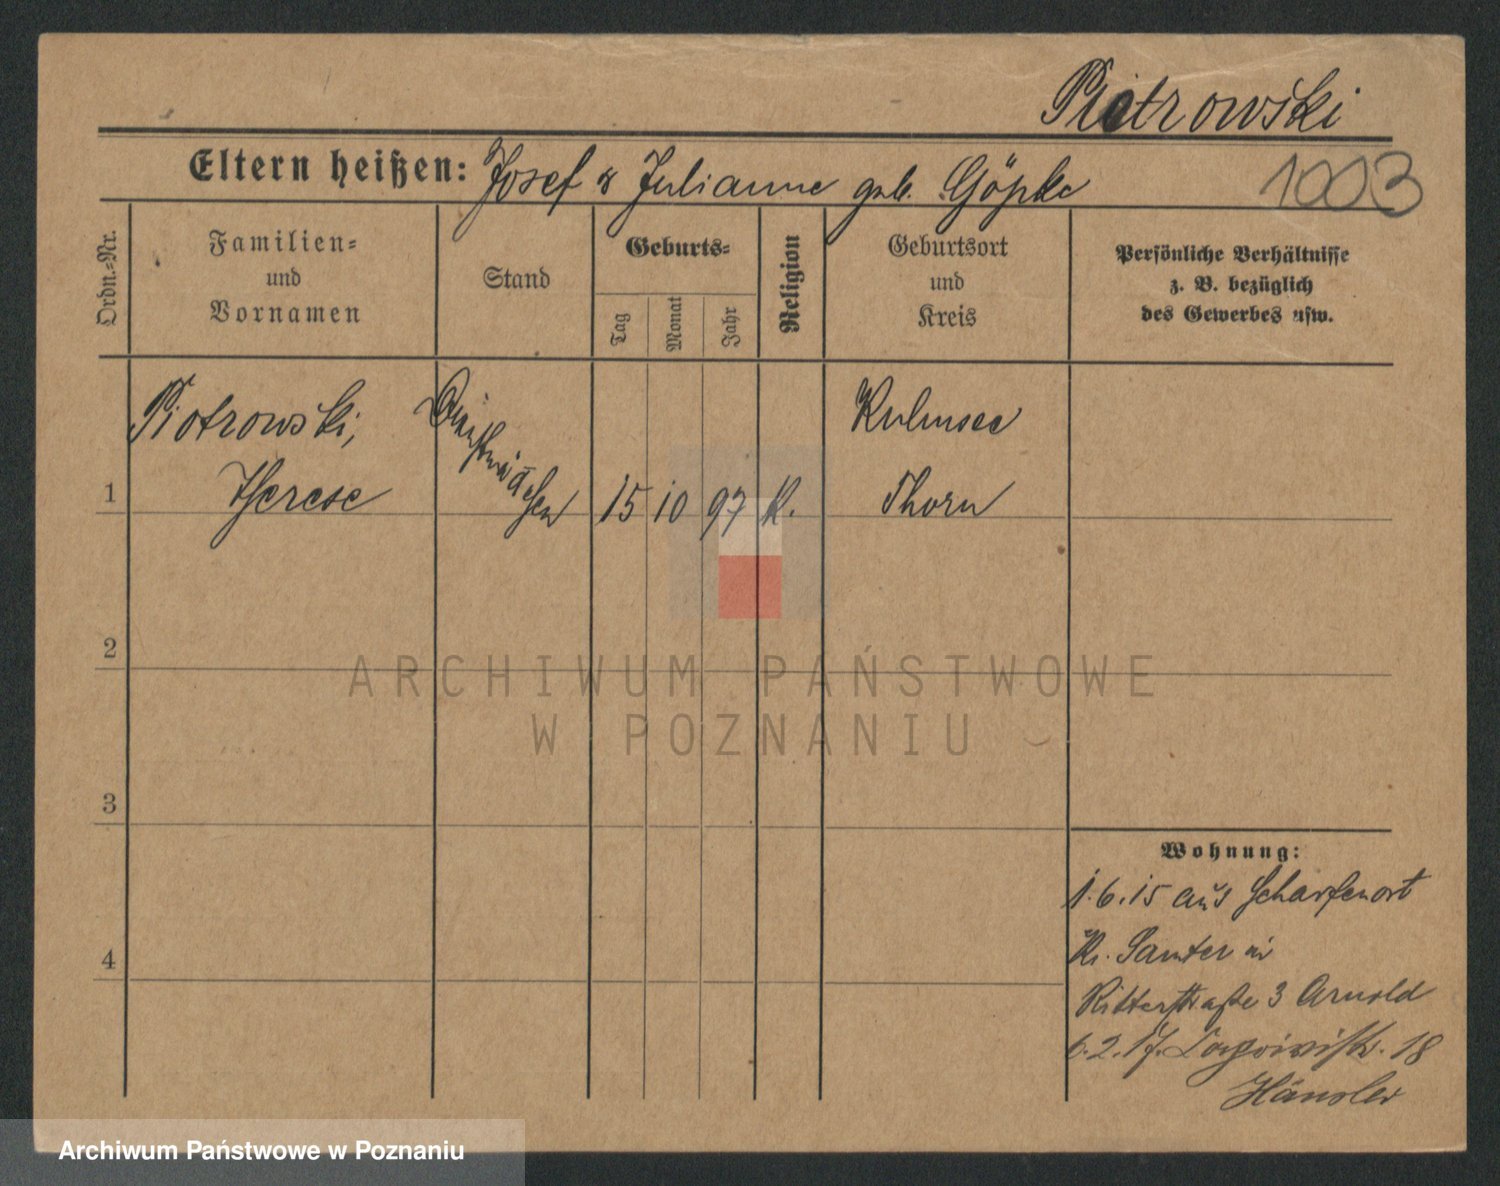 Piotrowski
Eltern heißen: Josef & Julianne geb. Göpke
1003
Ordn.-Nr.
Familien-
und
Vornamen
Stand
Geburts-
Tag
Monat
Jahr
Religion
Geburtsort
und
Kreis
Persönliche Verhältnisse
z. B. bezüglich
des Gewerbes usw.
Piotrowski,
Therese
Dienstmädchen
1
15 10 97 K.
Kulmsee
Thorn
2
3
4
ARCHIWUM PAŃSTWOWE
W POZNANIU
Wohnung:
1.6.15 aus Scharfenort
Kr. Samter in
Ritterstraße 3 Arnold
6.2.17. 18
Hänsler
Archiwum Państwowe w Poznaniu